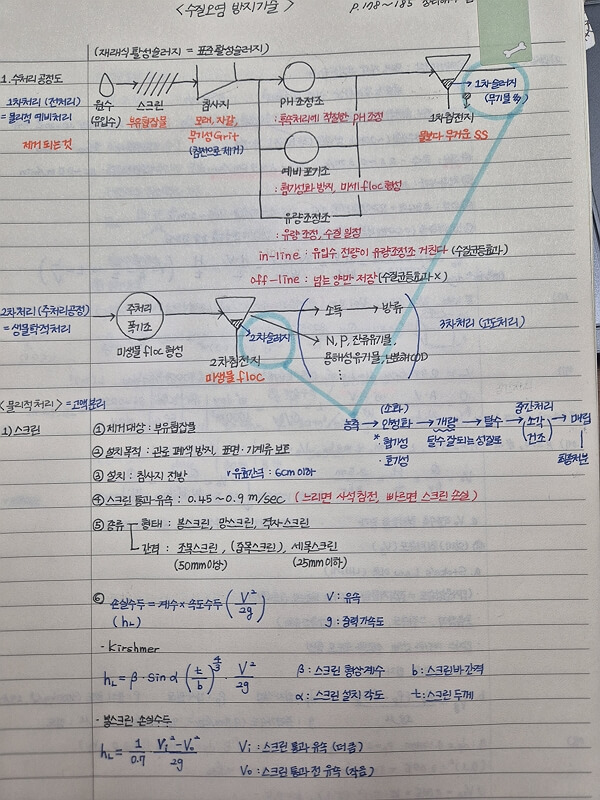 <수질오염 방지기술>
P.178~185
(재래식 활성슬러지 = 표준활성슬러지)
1. 수처리 공정도
1차처리 (전처리)
= 물리적 예비처리
제거 되는 것
원수
(유입수)
스크린
부유협잡물
침사지
모래, 자갈,
무기성 Grit
(침전으로 제거)
PH조정조
: 후수처리에 적정한 pH 조정
예비 포기조
: 혐기성화 방지, 미세 floc 형성
유량조정조
: 유량 조정, 수질 일정
1차침전지
물보다 무거운 SS
1차슬러지
(무기물 多)
in-line : 유입수 전량이 유량조정조 거친다 (수질균등효과)
off-line : 넘는 양만 저장 (수질균등효과 X)
2차처리 (주처리공정)
= 생물학적처리
주처리
폭기조
미생물 floc 형성
2차침전지
미생물 floc
2차슬러지
소독 → 방류
N, P, 잔류유기물,
용해성유기물, 난분해COD
⋮
3차처리 (고도처리)
농축 → 안정화 → 개량 → 탈수 → 소각 → 매립
(소화)
* 혐기성
호기성
탈수 잘되는 성질로
중간처리
건조
최종처분
<물리적처리> = 고액분리
1) 스크린
① 제거대상 : 부유협잡물
② 설치목적 : 관로 폐색 방지, 펌프·기계류 보호
③ 설치 : 침사지 전방
v 유효간격 : 6cm 이하
④ 스크린 통과유속 : 0.45~0.9 m/sec (느리면 사석 침전, 빠르면 스크린 손실)
⑤ 종류 형태 : 봉스크린, 망스크린, 격자스크린
간격 : 조목스크린, (중목스크린), 세목스크린
(50mm이상) (25mm이하)
⑥ 손실수두 = 계수 × 속도수두 (V²/2g)
(hL)
V : 유속
g : 중력가속도
· Kirshmer
hL = β · sin α (t/b)^4/3 · V²/2g
β : 스크린 형상계수 b : 스크린바 간격
α : 스크린 설치 각도 t : 스크린 두께
· 봉스크린 손실수두
hL = 1/0.7 · Vi² - Vo²/2g
Vi : 스크린 통과 유속 (더 큼)
Vo : 스크린 통과 전 유속 (작음)